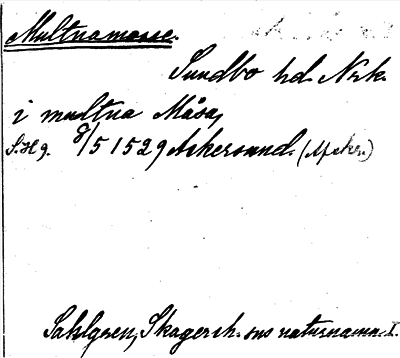 Multnamosse.
Sundbo hd. Nrk.
i multna Måsa,
S. H g. 8/5 1529 Askersund. (Apskr.)
Sahlgren, Skagersh. sns naturnamn. I.